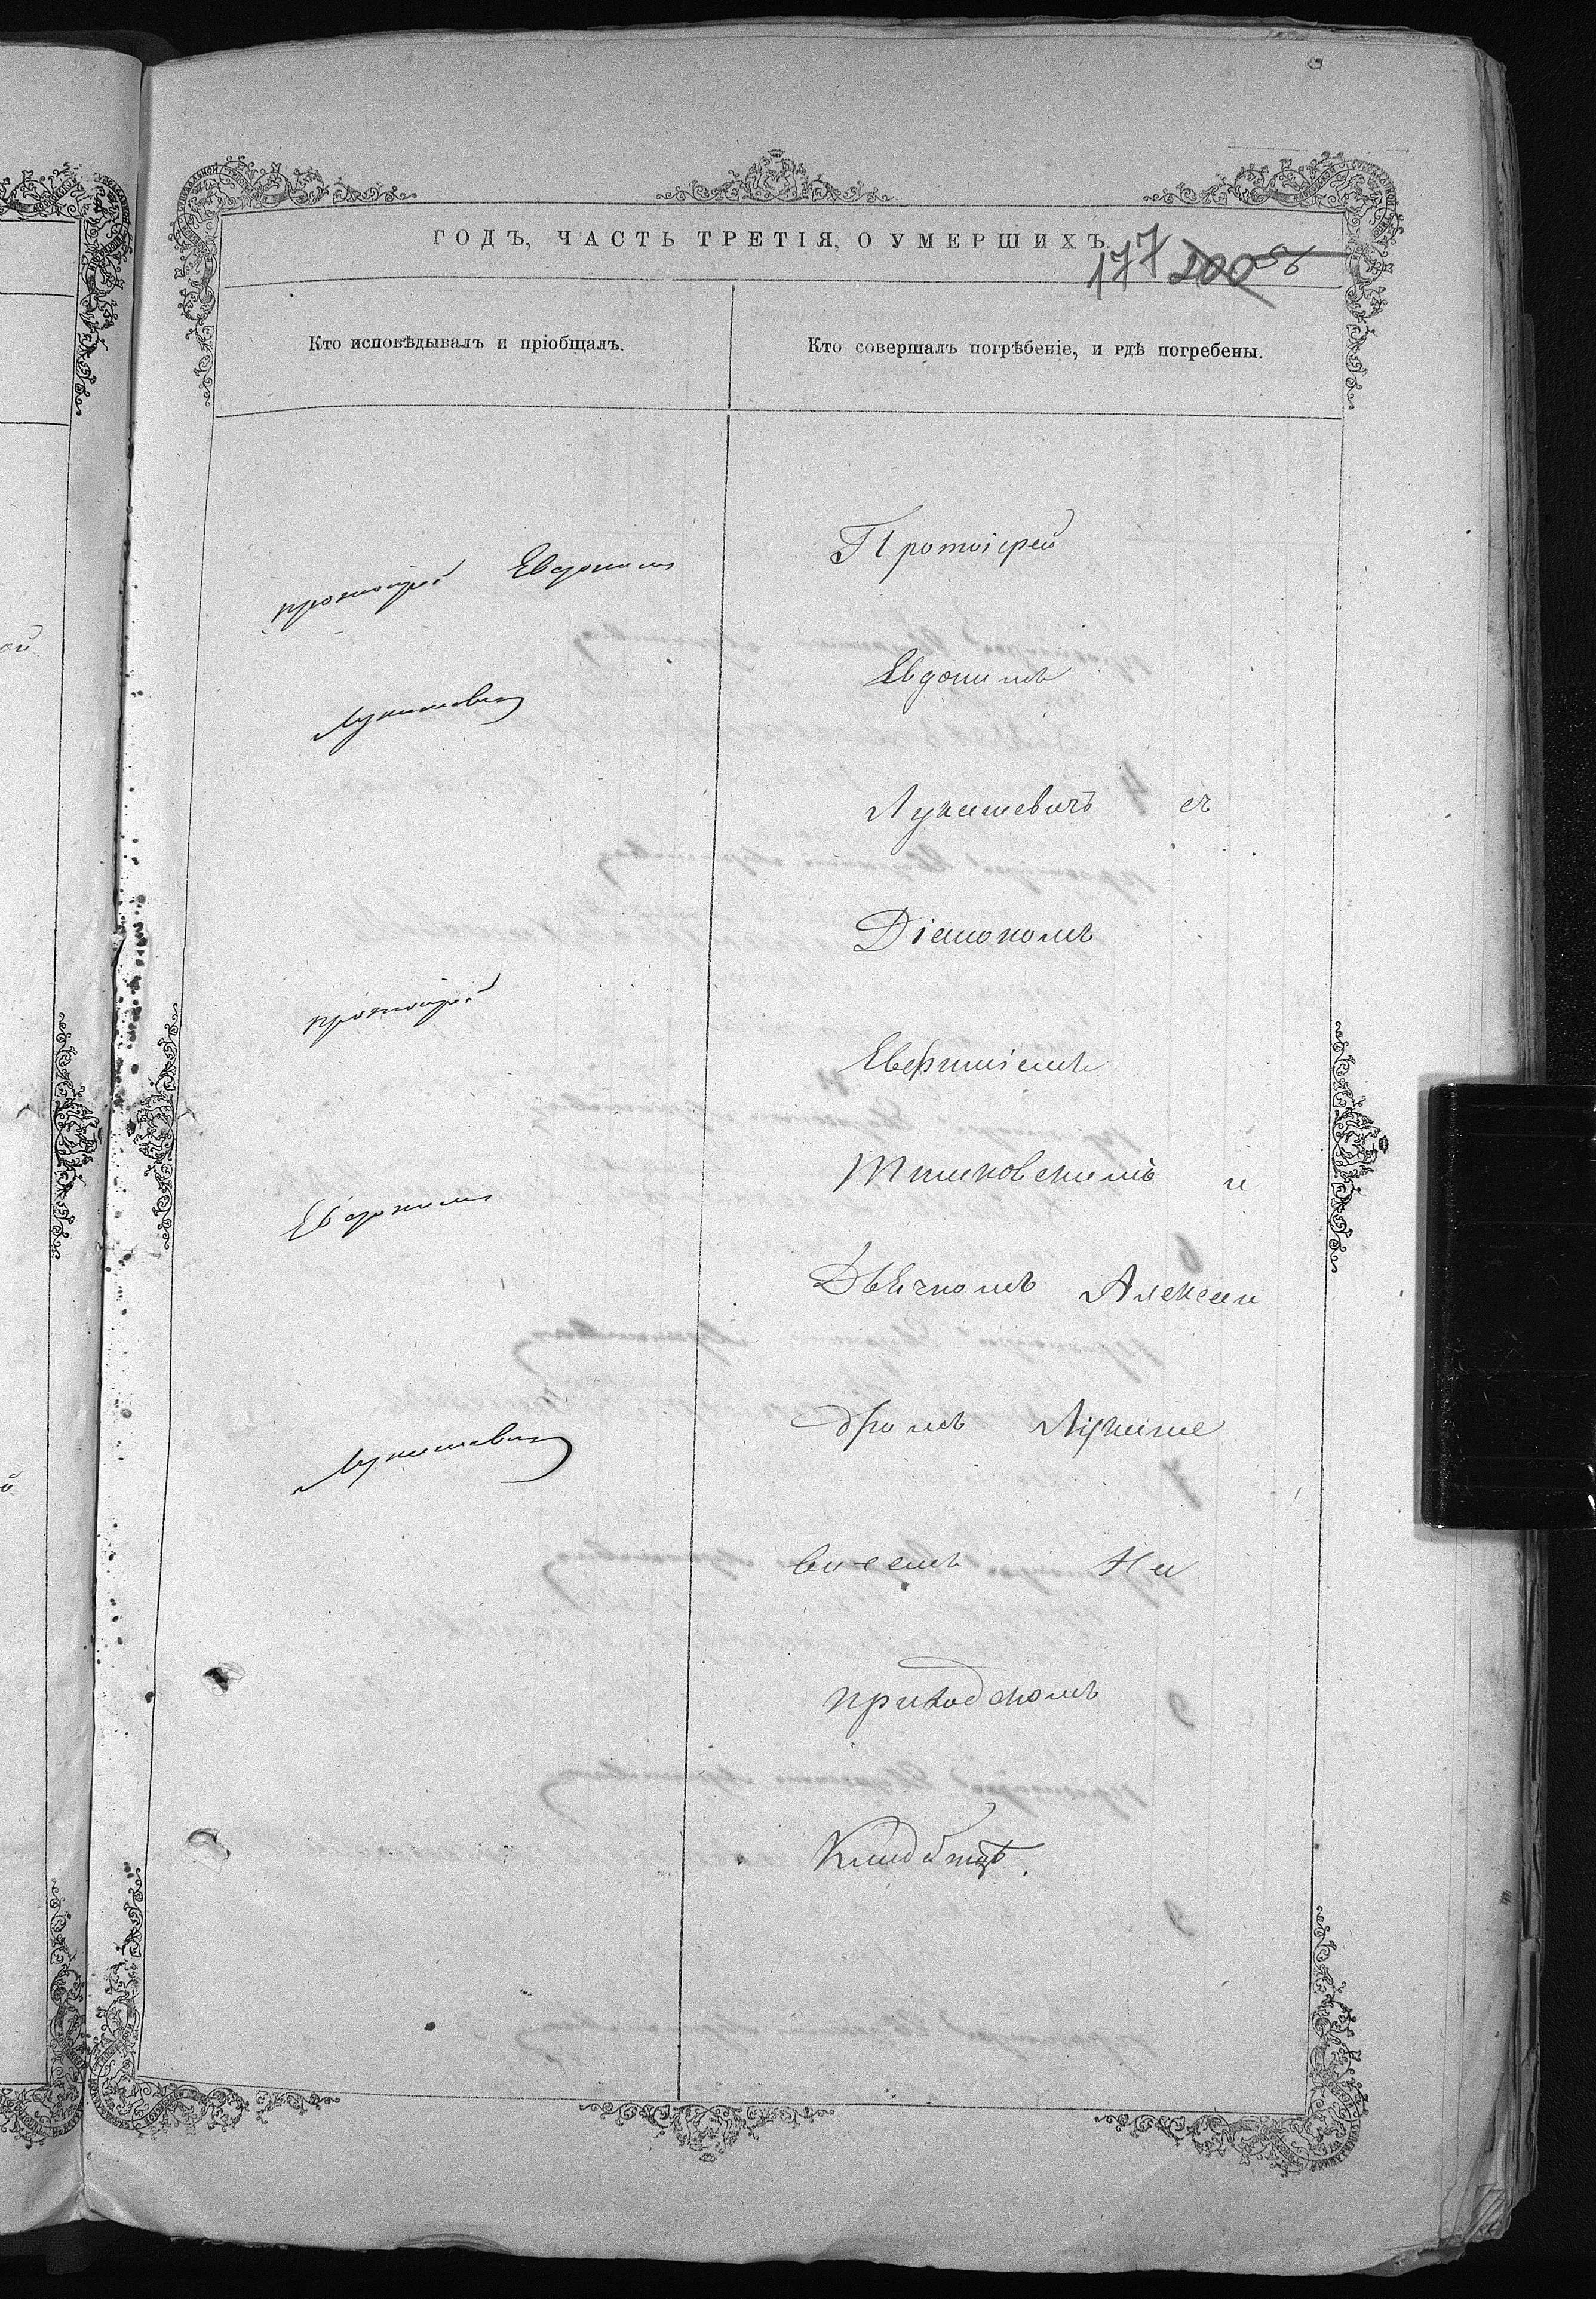 ГОДЪ, ЧАСТЬ ТРЕТІЯ, О УМЕРШИХЪ.
177 200 56
Кто исповѣдывалъ и пріобщалъ.
Кто совершалъ погрѣбеніе, и гдѣ погребены.
протоіерей Евдоким
Лукашевич
протоіерей
Евдоким
Лукашевич
Протоіерей
Евдокимъ
Лукашевичъ съ
Діакономъ
Евфиміемъ
и
Дьячкомъ Алексан
дромъ Лукаше
вичемъ На
приходскомъ
Кладбищѣ.